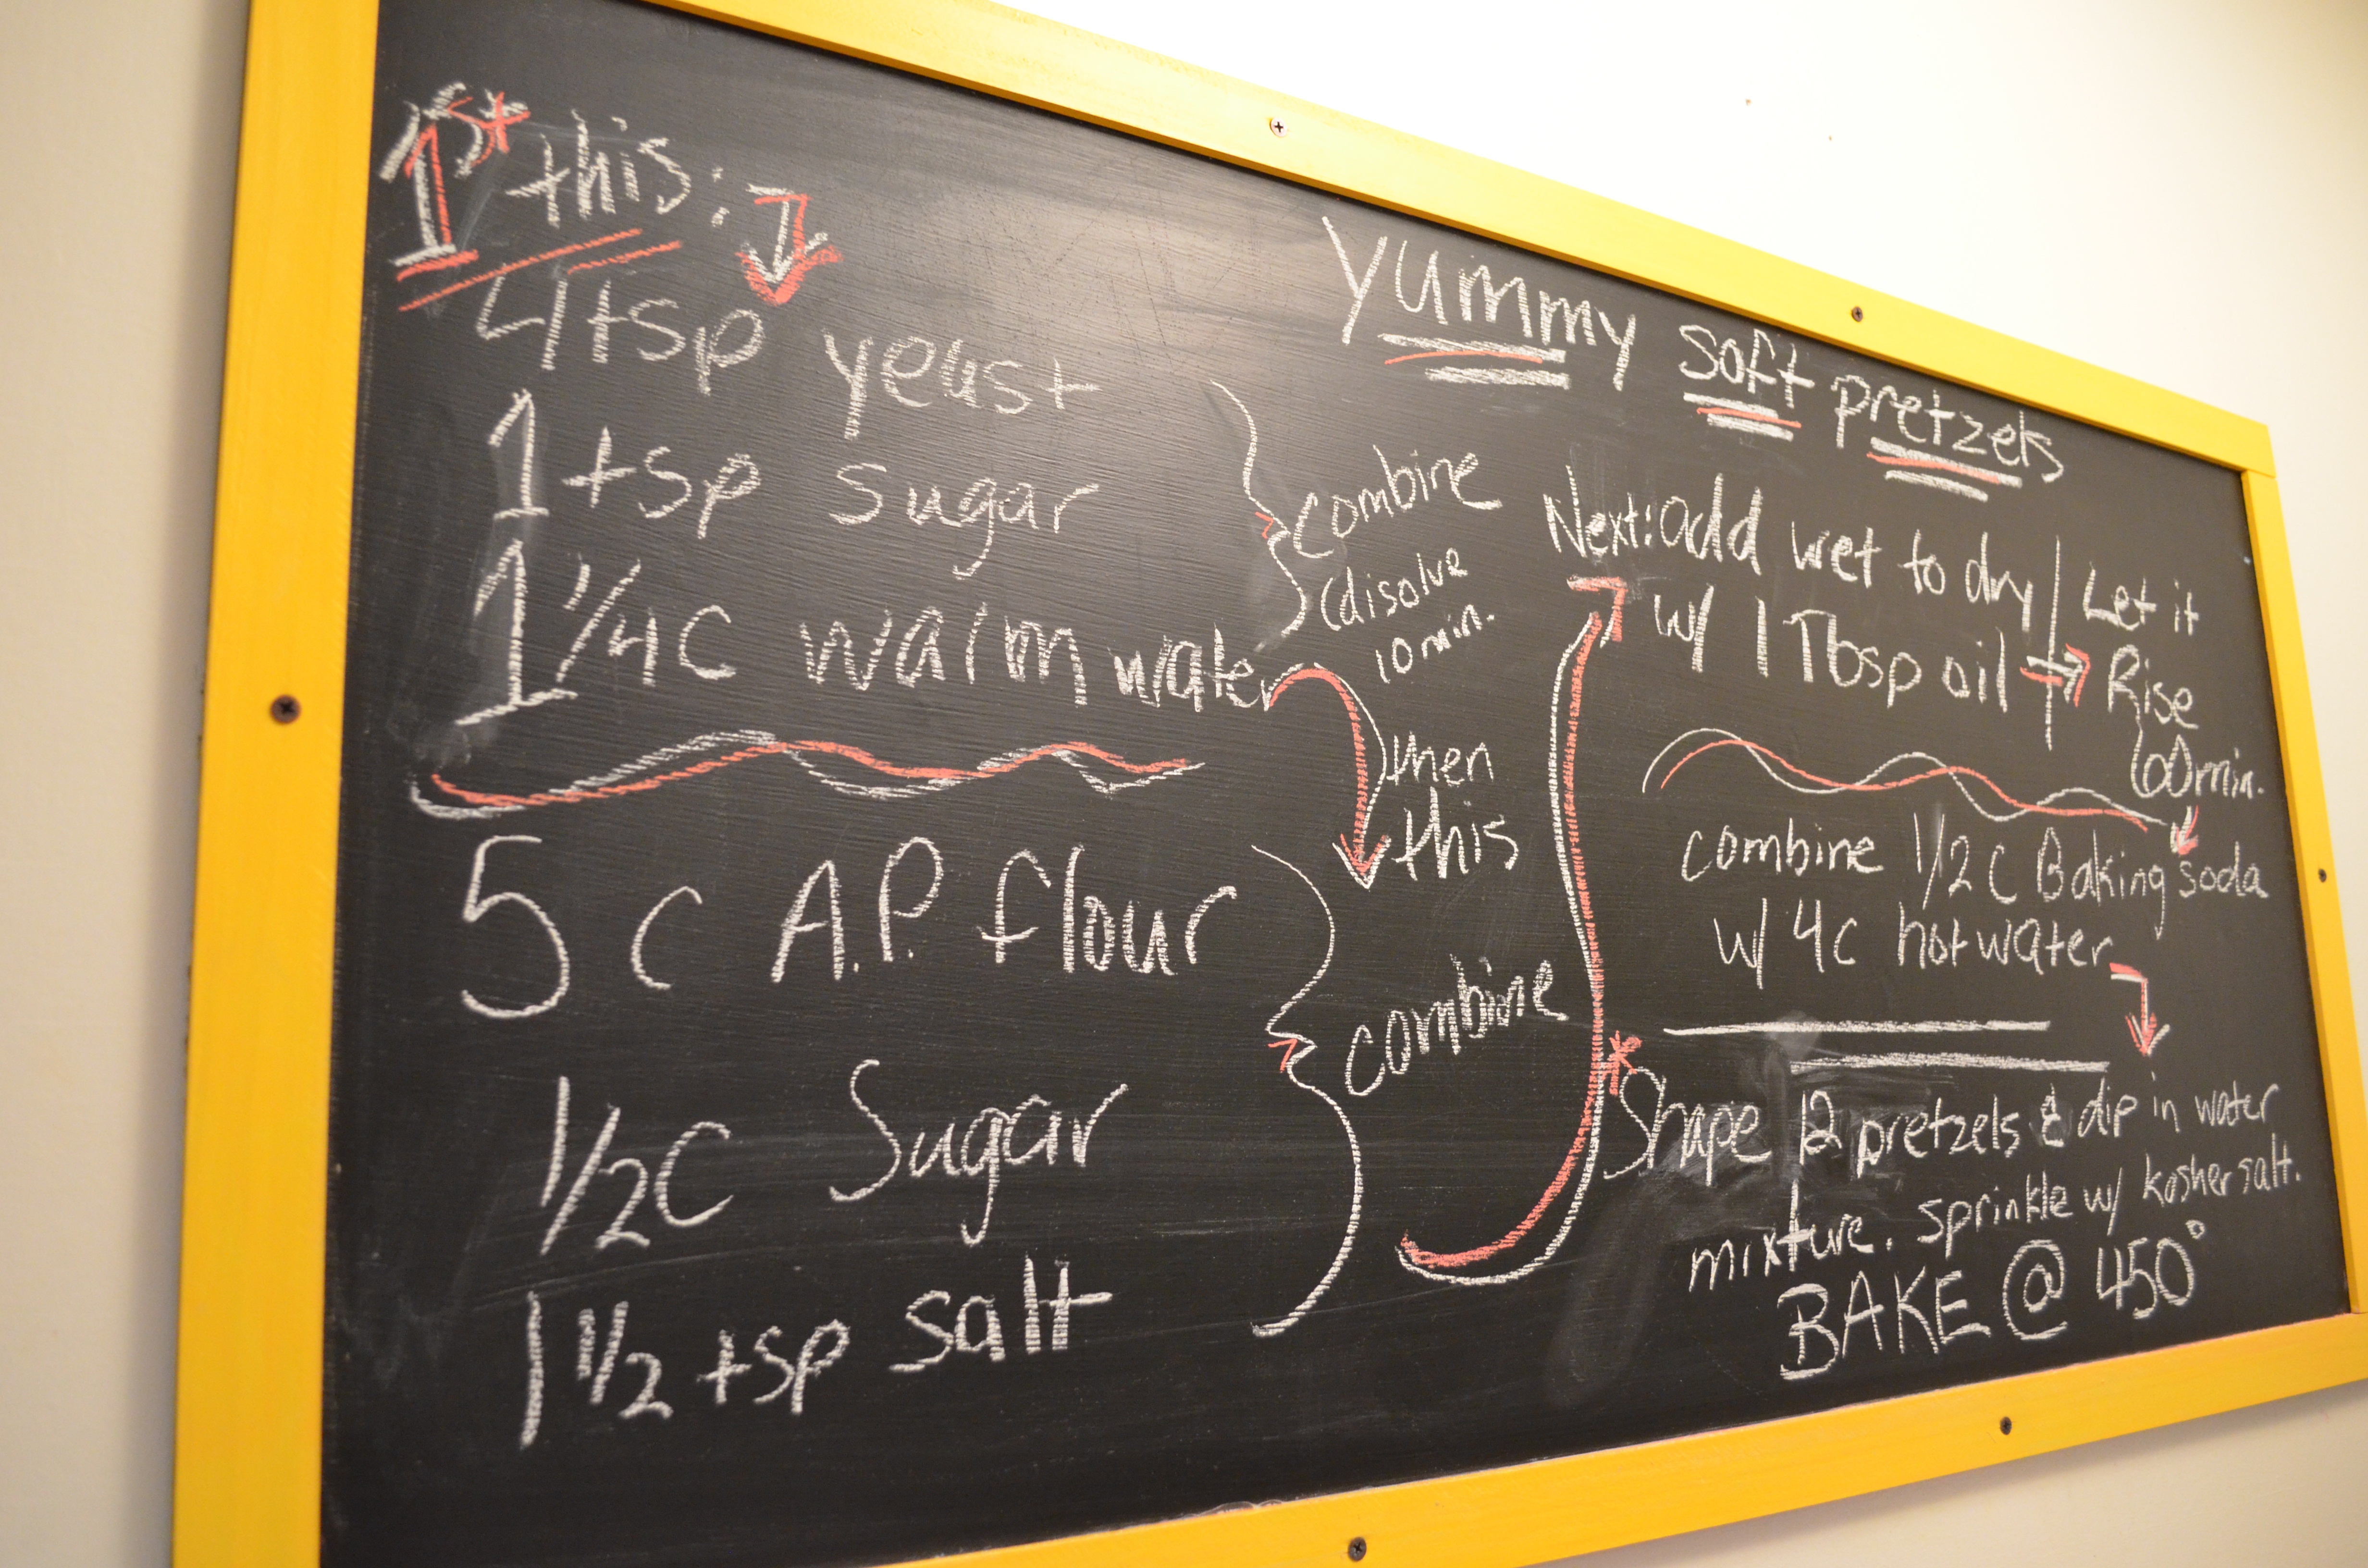 1st this:
4 tsp yeast
1 tsp sugar
1 1/4 c warm water
combine
(disolve
10 min.
then
this
5 c A.P. flour
1/2 c Sugar
1 1/2 tsp salt
combine
Yummy soft pretzels
Next: add wet to dry
w/ 1 Tbsp oil
Let it
Rise
60 min.
combine 1/2 c Baking soda
w/ 4c hot water
*Shape 12 pretzels & dip in water
mixture. sprinkle w/ kosher salt.
BAKE @ 450°